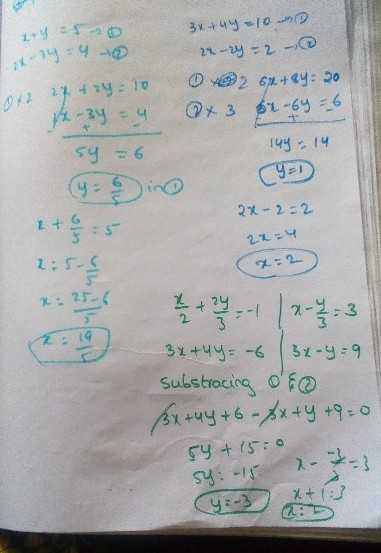 x+y = 5 → ①
2x-3y = 4 → ②
①×2 2x + 2y = 10
2x - 3y = 4
- + -
5y = 6
y = 6/5 in ①
x + 6/5 = 5
x = 5 - 6/5
x = 25-6/5
x = 19/5
3x+4y = 10 → ①
2x-2y = 2 → ②
① × 2 6x + 8y = 20
② × 3 6x - 6y = 6
- + -
14y = 14
y = 1
2x - 2 = 2
2x = 4
x = 2
x/2 + 2y/3 = -1 | x - y/3 = 3
3x+4y = -6 | 3x-y = 9
Substracing ① & ②
3x+4y+6 - 3x+y+9 = 0
5y + 15 = 0
5y = -15
y = -3
x - -3/3 = 3
x+1 = 3
x = 2